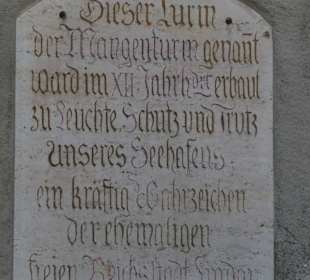 Dieser Turm
der Mangenturm genant
ward im XII. Jahrhdrt erbaut
zu Leuchte, Schutz und Trutz
unseres Seehafens,
ein kräftig Wahrzeichen
der ehemaligen
freien Reichsstadt Lindau